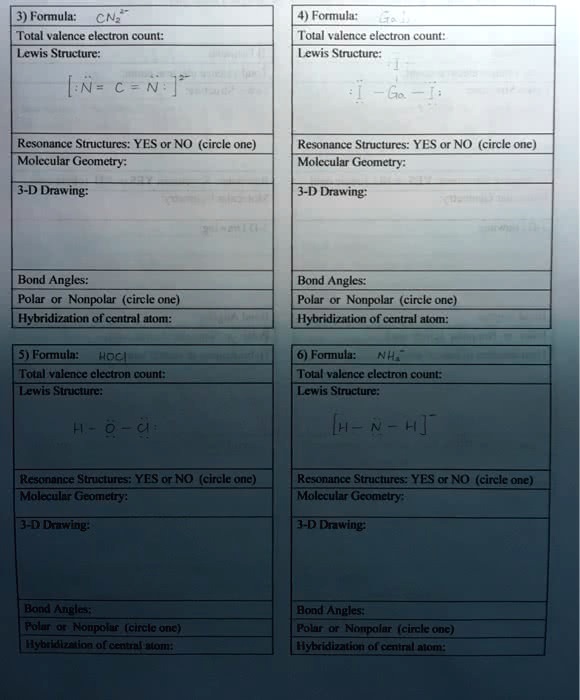 3) Formula: CN₂²⁻
Total valence electron count:
Lewis Structure:
[:N̈ = C = N̈:]²⁻
Resonance Structures: YES or NO (circle one)
Molecular Geometry:
3-D Drawing:
Bond Angles:
Polar or Nonpolar (circle one)
Hybridization of central atom:
4) Formula: GaI₃
Total valence electron count:
Lewis Structure:
I
:I - Ga - I:
Resonance Structures: YES or NO (circle one)
Molecular Geometry:
3-D Drawing:
Bond Angles:
Polar or Nonpolar (circle one)
Hybridization of central atom:
5) Formula: HOCl
Total valence electron count:
Lewis Structure:
H - Ö - Cl:
Resonance Structures: YES or NO (circle one)
Molecular Geometry:
3-D Drawing:
Bond Angles:
Polar or Nonpolar (circle one)
Hybridization of central atom:
6) Formula:
Total valence electron count:
Lewis Structure:
[H - N - H]⁻
Resonance Structures: YES or NO (circle one)
Molecular Geometry:
3-D Drawing:
Bond Angles:
Polar or Nonpolar (circle one)
Hybridization of central atom: